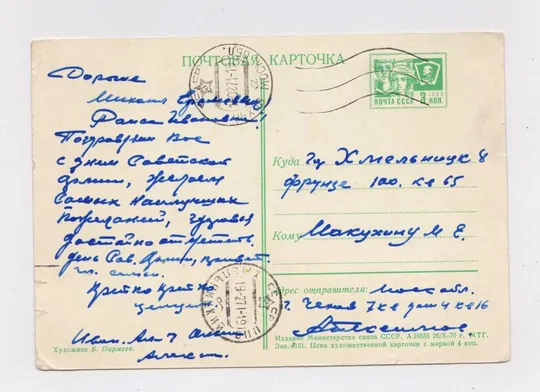 ПОЧТОВАЯ КАРТОЧКА
ПОЧТА СССР
3 коп
Дорогие
Михаил Еремеевич,
Раиса Ивановна!
Поздравляем Вас
с днем Советской
Армии, желаем
самых наилучших
пожеланий, здоровья
достойно отметить
день Сов. Армии, привет
Крепко крепко
целуем
Художник Б. Пармеев.
Куда Хмельницк 8
Фрунзе 100. кв 65
Кому Макухину М Е.
Адрес отправителя: Моск обл.
г. Чехов
Издание Министерства связи СССР. А 10555 26/X-70 г. МТГ.
Цена художественной карточки с маркой 4 коп.